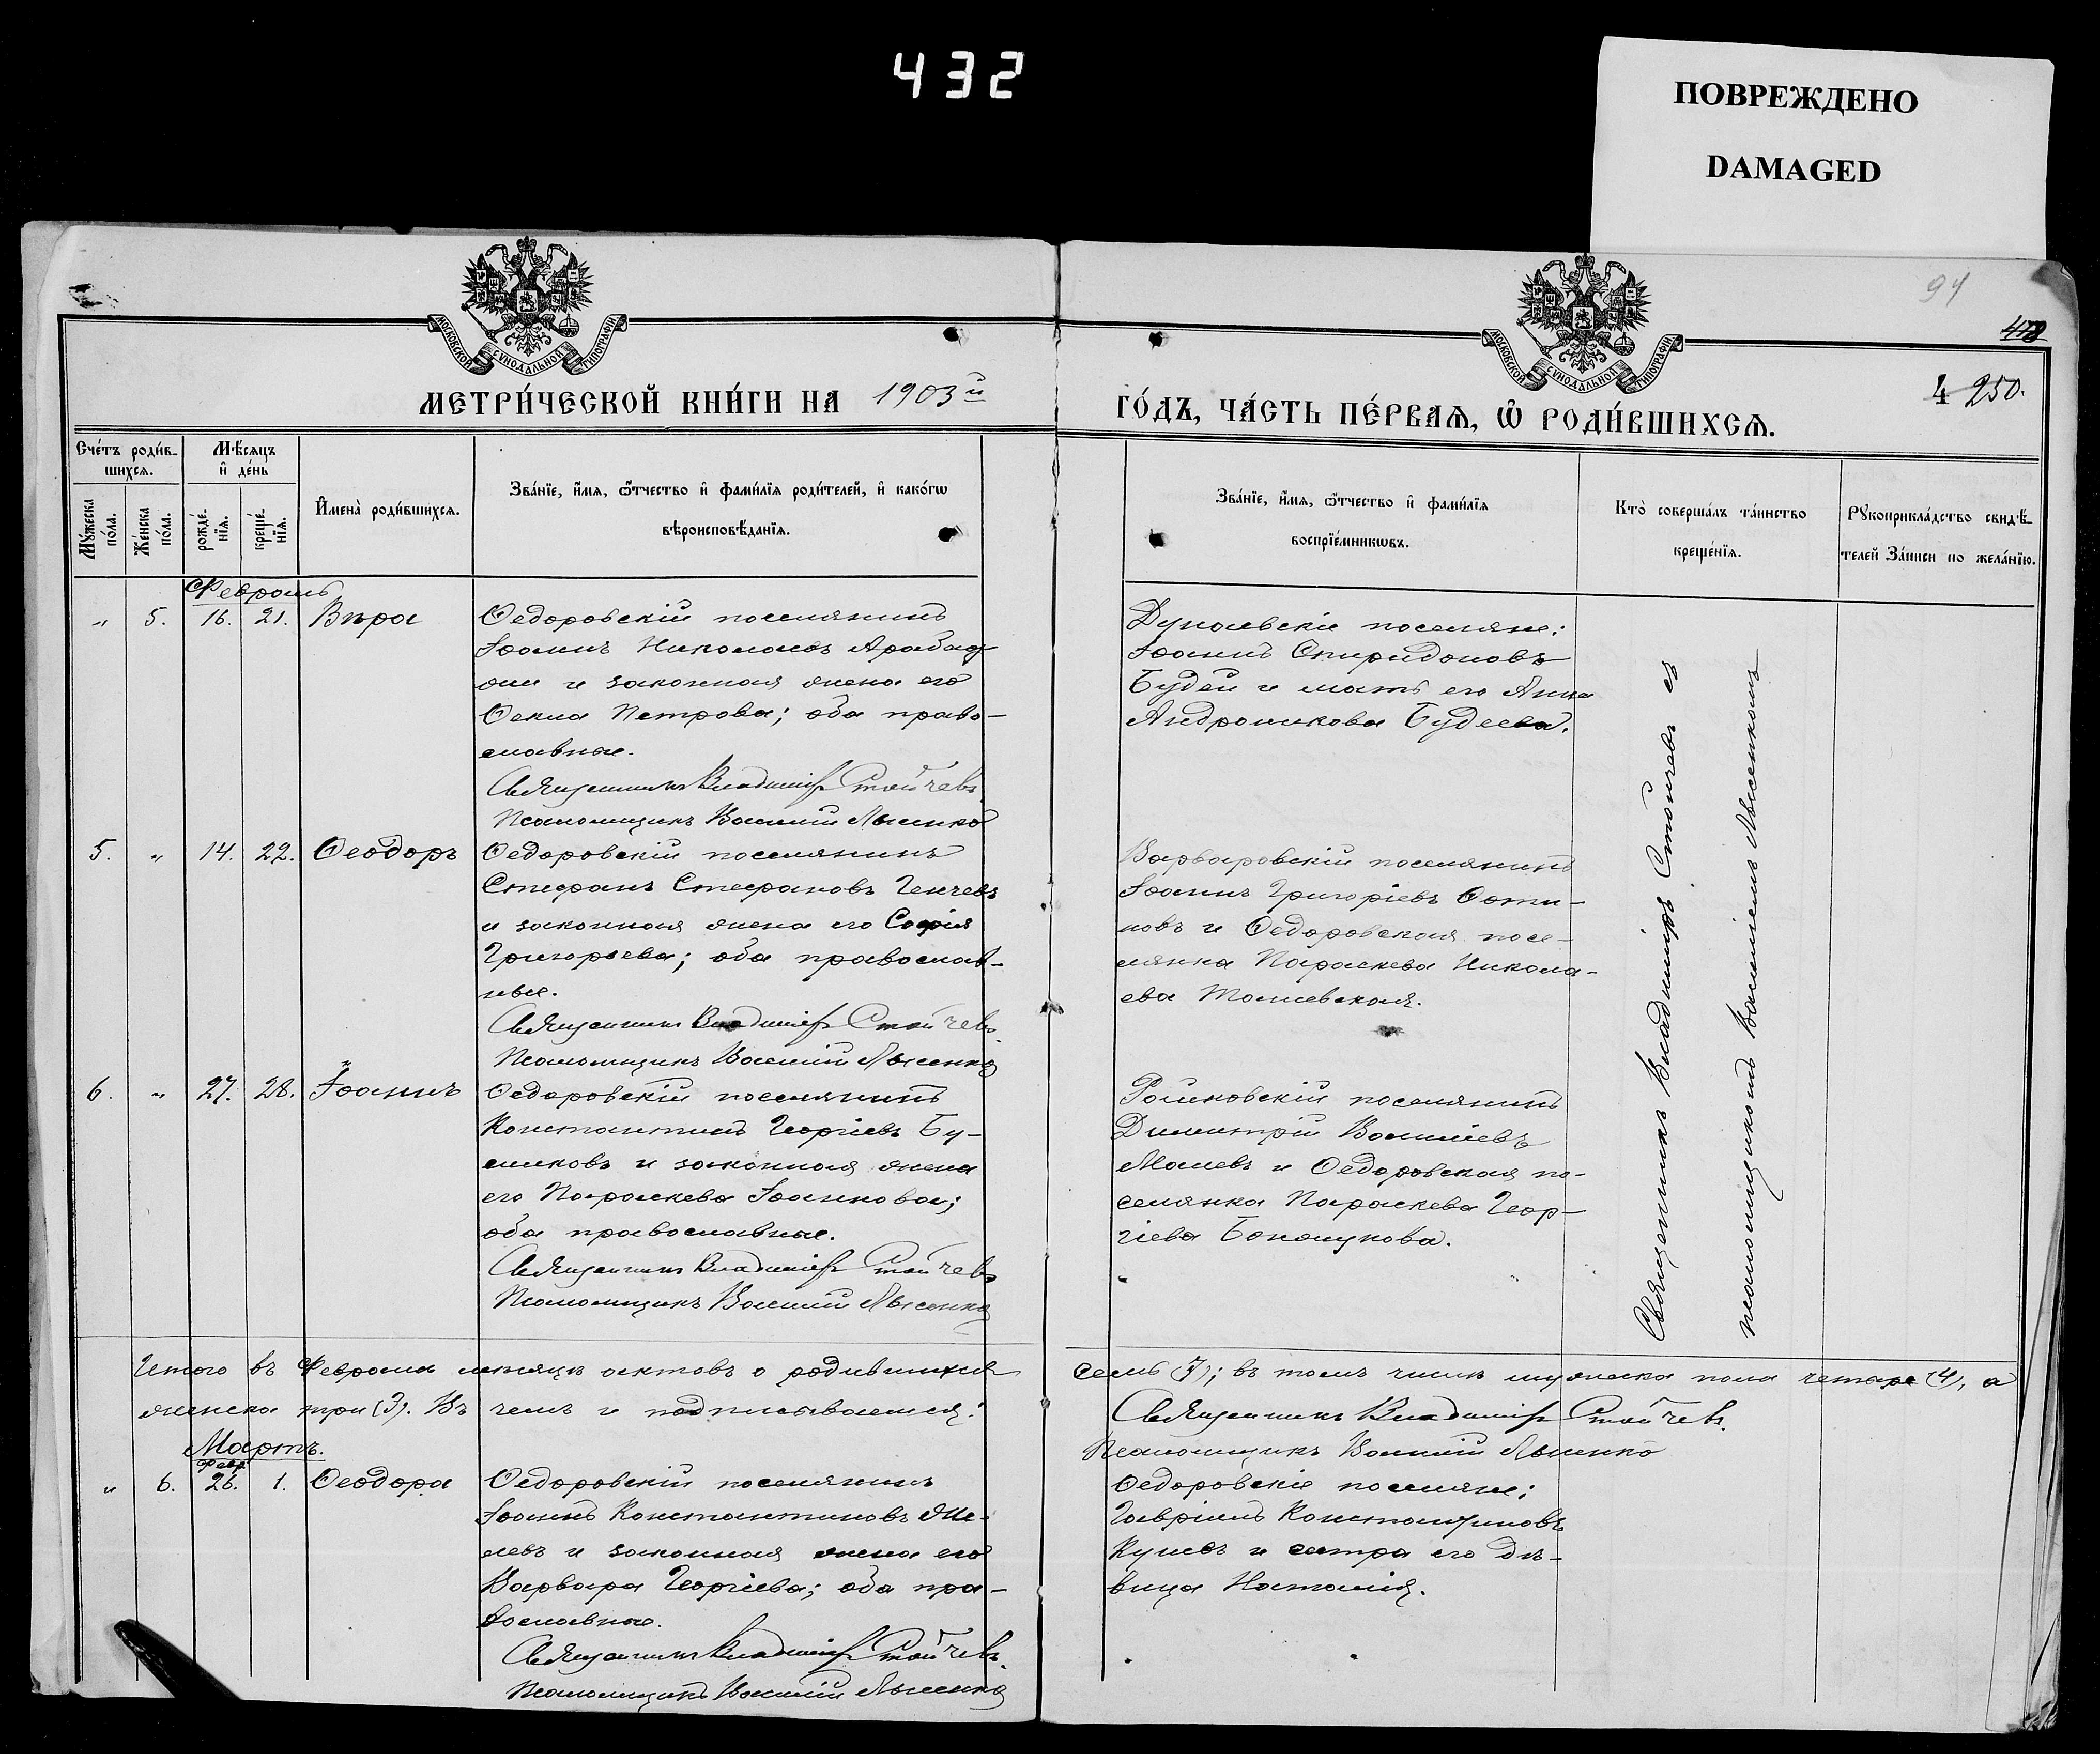 432
ПОВРЕЖДЕНО
DAMAGED
94
478
4 250.
МОСКОВСКОЙ СУНОДАЛЬНОЙ ТИПОГРАФІИ
МОСКОВСКОЙ СУНОДАЛЬНОЙ ТИПОГРАФІИ
МЕТРИ́ЧЕСКОЙ КНИ́ГИ НА 1903й
ГО́ДЪ, ЧА́СТЬ ПЕ́РВАѦ, Ѿ РОДИ́ВШИХСѦ.
Сче́тъ роди́в-
шихсѧ.
Мѣ́сяцъ
и҆ де́нь
Мꙋ́жеска по́ла.
Же́нска по́ла.
рожде́-нїѧ.
креще́-нїѧ.
И҆мена̀ роди́вшихсѧ.
Зва́нїе, и҆́мѧ, ѻ҆́тчество и҆ фами́лїѧ роди́телей, и҆ како́гѡ
вѣроисповѣ́данїѧ.
Зва́нїе, и҆́мѧ, ѻ҆́тчество и҆ фами́лїѧ
воспрїе́мникѡвъ.
Кто̀ соверша́лъ та́инство
креще́нїѧ.
Рꙋкоприкла́дство свидѣ́-
телей За́писи по жела́нїю.
Февраль
„ 5. 16. 21. Вѣра
Ѳедоровскій поселянинъ
Іоаннъ Николаевъ Арабад
жи и законная жена его
Ѳекла Петрова; оба право-
славные.
Священникъ Владиміръ Стойчевъ.
Псаломщикъ Василій Лысенко
Дунаевскіе поселяне:
Іоаннъ Спиридоновъ
Будей и мать его Анна
Андроникова Будеева.
5. „ 14. 22. Ѳеодоръ
Ѳедоровскій поселянинъ
Стефанъ Стефановъ Генчевъ
и законная жена его Софія
Григорьева; оба православ-
ные.
Священникъ Владиміръ Стойчевъ.
Псаломщикъ Василій Лысенко
Варваровскій поселянинъ
Іоаннъ Григоріевъ Фоти-
новъ и Ѳедоровская посе-
лянка Параскева Никола-
ева
6. „ 27. 28. Іоаннъ
Ѳедоровскій поселянинъ
Константинъ Георгіевъ Бу-
шковъ и законная жена
его Параскева Іоаннова;
оба православные.
Священникъ Владиміръ Стойчевъ
Псаломщикъ Василій Лысенко
Райновскій поселянинъ
Димитрій Василіевъ
Малевъ и Ѳедоровская по-
селянка Параскева Геор-
гіева
Священникъ Владиміръ Стойчевъ съ
псаломщикомъ Василіемъ Лысенкомъ
Итого въ Февралѣ мѣсяцѣ актовъ о родившихся семь (7); въ томъ числѣ мужеска пола четыре (4), а
женска три (3). Въ чемъ и подписываемся:
Священникъ Владиміръ Стойчевъ.
Псаломщикъ Василій Лысенко
Мартъ.
Февр
„ 6. 26. 1. Ѳеодора
Ѳедоровскій поселянинъ
Іоаннъ Константиновъ Же-
левъ и законная жена его
Варвара Георгіева; оба пра-
вославные.
Священникъ Владиміръ Стойчевъ.
Псаломщикъ Василій Лысенко
Ѳедоровскіе поселяне:
Гавріилъ Константиновъ
Куневъ и сестра его дѣ-
вица Наталія.